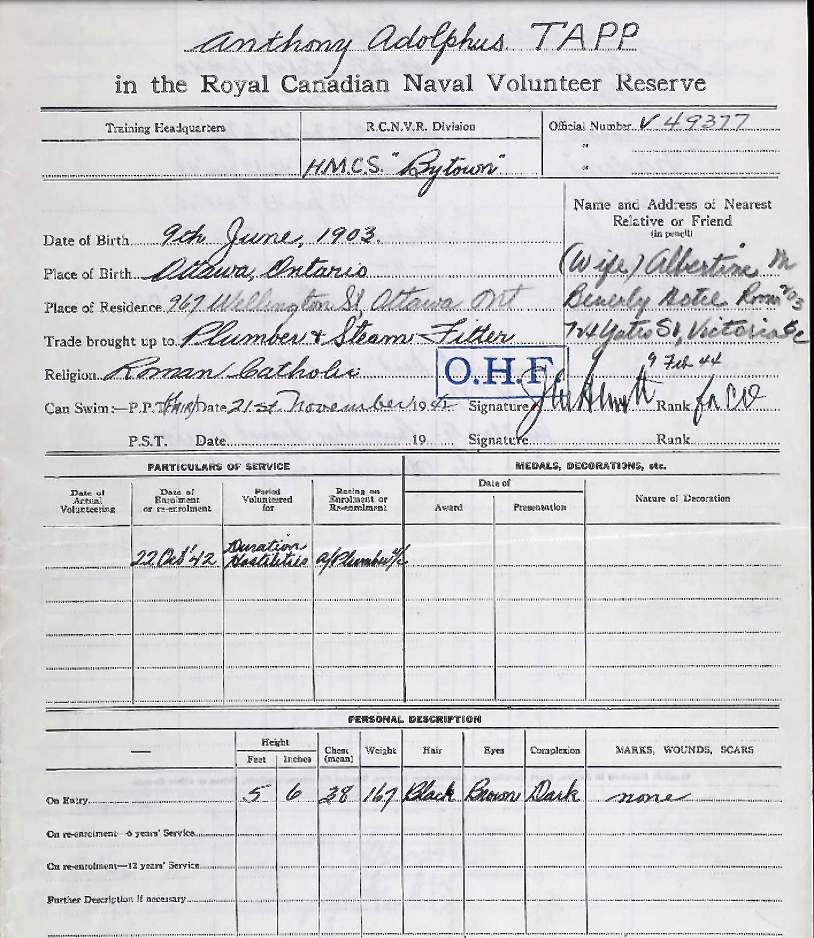 Anthony Adolphus TAPP
in the Royal Canadian Naval Volunteer Reserve
Training Headquarters R.C.N.V.R. Division Official Number V 49377
"
H.M.C.S. "Bytown" "
Name and Address of Nearest
Relative or Friend
(in pencil)
Date of Birth 9th June, 1903.
(Wife) Albertine M
Place of Birth Ottawa, Ontario
Place of Residence 967 Wellington St, Ottawa Ont
Beverly Hotel Room
Trade brought up to Plumber & Steam Fitter
724 Yates St, Victoria BC
Religion Roman Catholic
O.H.F.
9 Feb 44
Can Swim:—P.P.T. (Fair) Date 21st November 1942 Signature Rank for CO
P.S.T. Date 19 Signature Rank
PARTICULARS OF SERVICE MEDALS, DECORATIONS, etc.
Date of Actual Volunteering Date of Enrolment or re-enrolment Period Volunteered for Rating on Enrolment or Re-enrolment Date of Award Presentation Nature of Decoration
22 Oct '42 Duration Hostilities A/Plumber 4/c
PERSONAL DESCRIPTION
— Height Feet Inches Chest (mean) Weight Hair Eyes Complexion MARKS, WOUNDS, SCARS
On Entry 5 6 38 167 Black Brown Dark none
On re-enrolment—6 years' Service
On re-enrolment—12 years' Service
Further Description if necessary